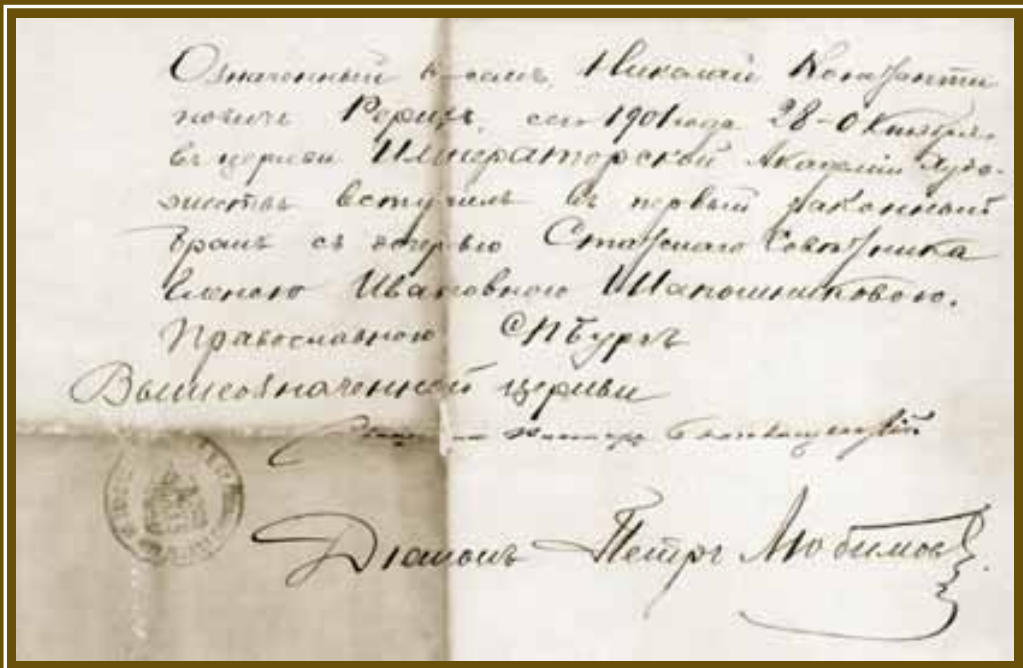 Означенный въ семъ, Николай Константи
новичъ Рерихъ, сего 1901 года 28-Октября
въ церкви Императорской Академіи Худо-
жествъ вступилъ въ первый законный
бракъ съ дочерью Статскаго Совѣтника
Еленою Ивановною Шапошниковою.
Православною СПбургъ
Вышеозначенной церкви
Благовѣщенскій
Діаконъ Петръ Любимовъ